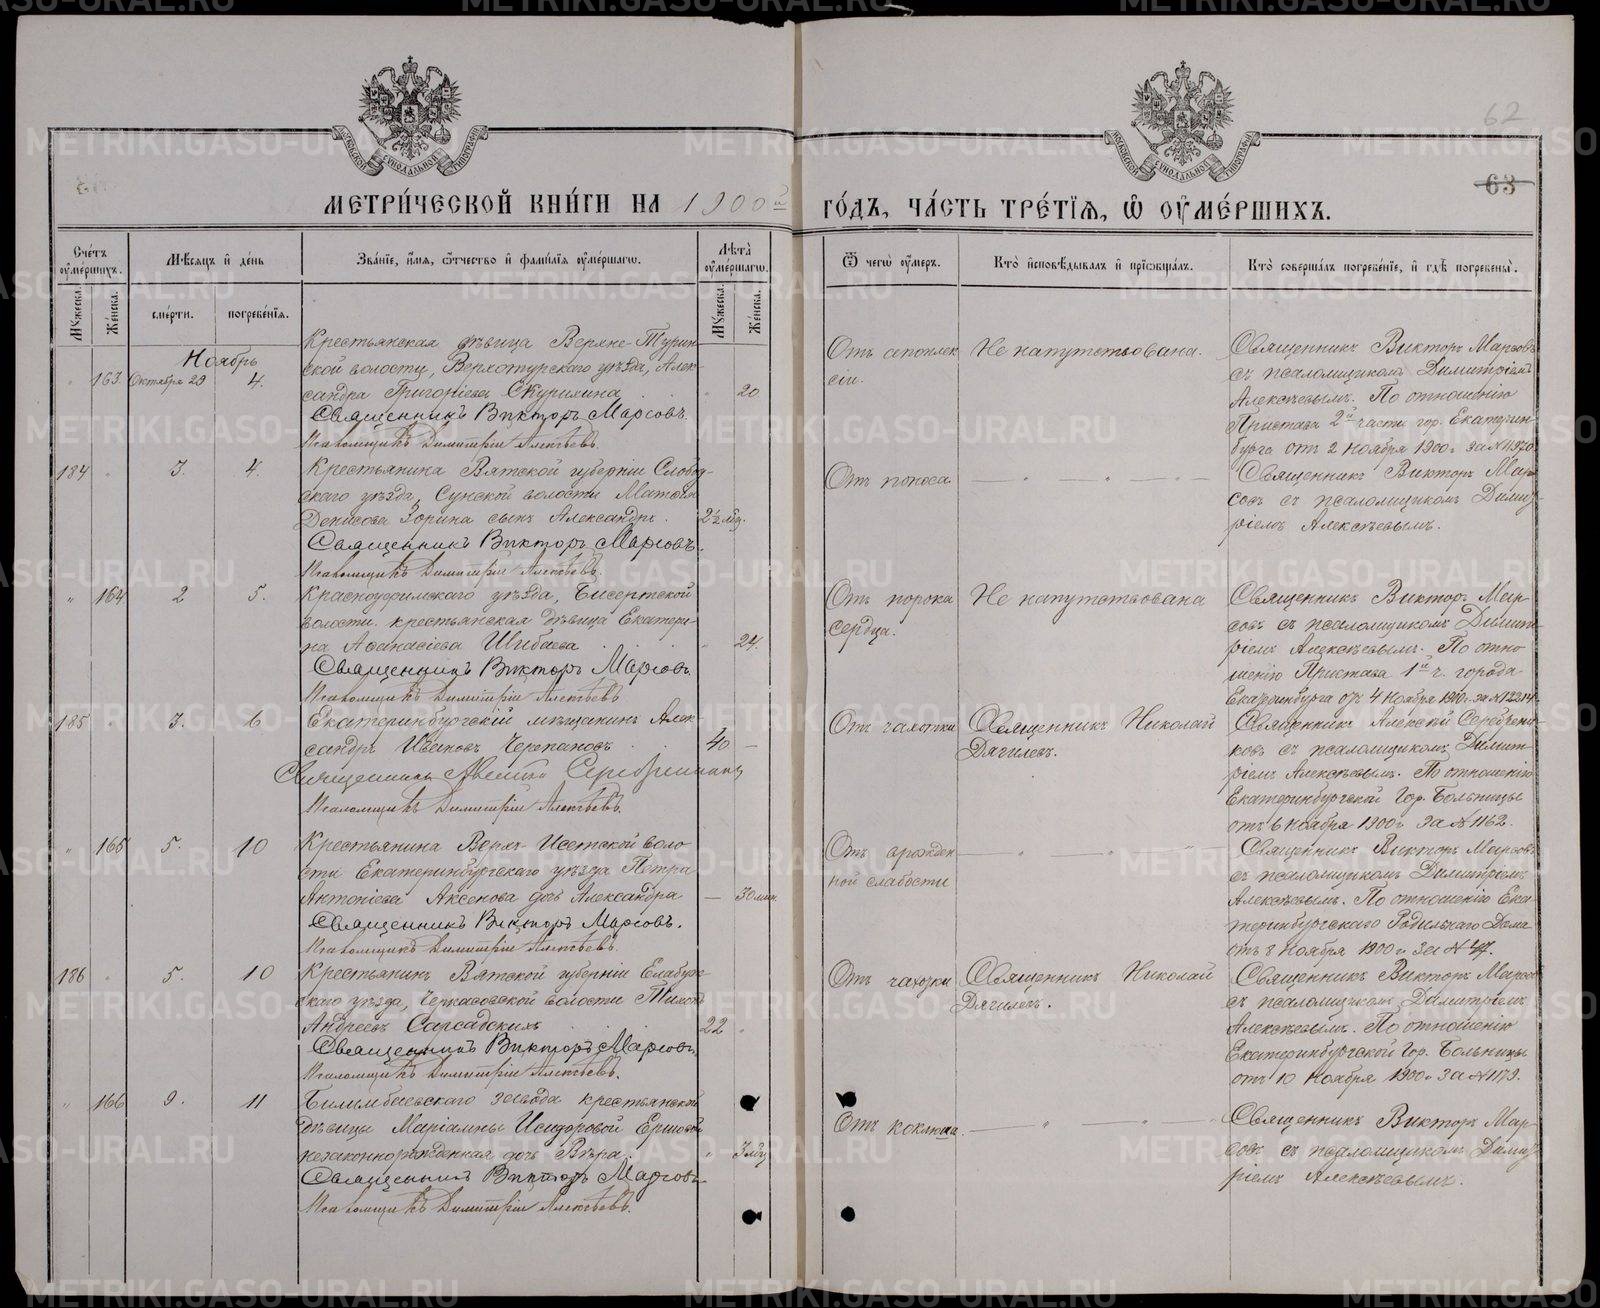 62
63
МЕТРИ́ЧЕСКОЙ КНИ́ГИ НА 1900й
ГО́ДЪ, ЧА́СТЬ ТРЕ́ТІѦ, Ѡ ОУМЕ́РШИХЪ.
Счетъ оумершихъ.
Мѣсяцъ и день
Званіе, имя, отчество и фамилія оумершагω.
Лѣта оумершагω.
Ѿ чегω оумеръ.
Кто исповѣдывалъ и пріобщалъ.
Кто совершалъ погребеніе, и гдѣ погребены.
Мужеска.
Женска.
смерти.
погребенія.
Мужеска.
Женска.
Ноябрь
163. Октября 29 4.
Крестьянская дѣвица Верхне-Турин
ской волости, Верхотурскаго уѣзда, Алек
сандра Григоріева Скурихина 20
Священникъ Викторъ Марсовъ.
Псаломщикъ Димитрій Алексѣевъ.
Отъ апоплек
сіи.
Не напутствована.
Священникъ Викторъ Марсовъ
съ псаломщикомъ Димитріемъ
Алексѣевымъ. По отношенію
Пристава 2й части гор. Екатерин
бурга отъ 2 Ноября 1900 г. за № 11970
184 3. 4.
Крестьянина Вятской губерніи Слобод-
скаго уѣзда, Сунской волости Матвѣя
Денисова Зорина сынъ Александръ. 2½ мѣс.
Священникъ Викторъ Марсовъ.
Псаломщикъ Димитрій Алексѣевъ.
Отъ поноса
Священникъ Викторъ Мар
совъ съ псаломщикомъ Димит
ріемъ Алексѣевымъ.
" 164 2 5.
Красноуфимскаго уѣзда, Бисертской
волости крестьянская дѣвица Екатери-
на Аѳанасіева Шибаева 24.
Священникъ Викторъ Марсовъ.
Псаломщикъ Димитрій Алексѣевъ
Отъ порока
сердца.
Не напутствована
Священникъ Викторъ Мар
совъ съ псаломщикомъ Димит
ріемъ Алексѣевымъ. По отно
шенію Пристава 1й ч. города
Екатеринбурга отъ 4 Ноября 1900 г. за № 12314
185 3. 6
Екатеринбургскій мѣщанинъ Алек-
сандръ Ивановъ Черепановъ 40 —
Священникъ Алексій Серебренниковъ
Псаломщикъ Димитрій Алексѣевъ.
Отъ чахотки
Священникъ Николай
Дягилевъ.
Священникъ Алексій Серебрени
ковъ съ псаломщикомъ Димит
ріемъ Алексѣевымъ. По отношенію
Екатеринбургской Гор. Больницы
отъ 6 Ноября 1900 г за № 1162.
" 165 5. 10
Крестьянина Верхъ-Исетской воло
сти Екатеринбургскаго уѣзда Петра
Антоніева Аксенова дочь Александра — 30 мин.
Священникъ Викторъ Марсовъ.
Псаломщикъ Димитрій Алексѣевъ.
Отъ врожден
ной слабости
Священникъ Викторъ Марсовъ
съ псаломщикомъ Димитріемъ
Алексѣевымъ. По отношенію Ека
теринбургскаго Родильнаго Дома
отъ 8 Ноября 1900 г за №
186 5. 10
Крестьянинъ Вятской губерніи Елабуж
скаго уѣзда, Черкасовской волости Тимоѳ
Андреевъ Сарсадскихъ 22 "
Священникъ Викторъ Марсовъ.
Псаломщикъ Димитрій Алексѣевъ.
Отъ чахотки
Священникъ Николай
Дягилевъ.
Священникъ Викторъ Марсовъ
съ псаломщикомъ Димитріемъ
Алексѣевымъ. По отношенію
Екатеринбургской Гор. Больницы
отъ 10 Ноября 1900 г за № 1179.
" 166 9. 11
Билимбаевскаго завода крестьянской
дѣвицы Маріамны Исидоровой Ершовой
незаконнорожденная дочь Вѣра. " 3 мѣс
Священникъ Викторъ Марсовъ
Псаломщикъ Димитрій Алексѣевъ.
Отъ коклюша.
Священникъ Викторъ Мар-
совъ съ псаломщикомъ Димит
ріемъ Алексѣевымъ.
METRIKI.GASO-URAL.RU